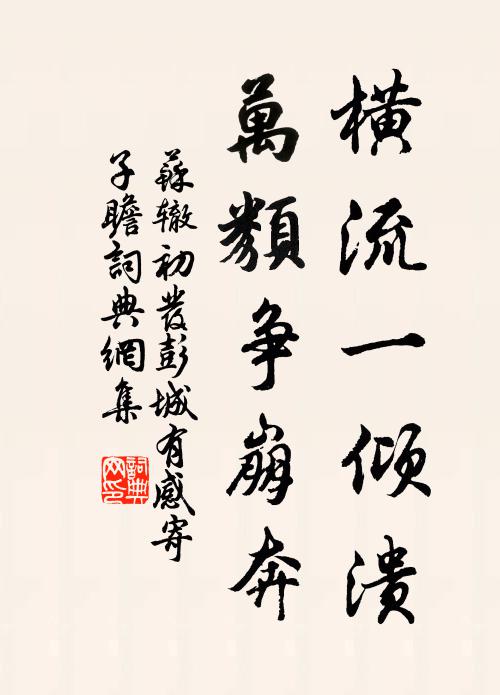 橫流一傾潰
萬類爭崩奔
蘇辙初發彭城有感寄
子瞻詞典網集
詞典
网印